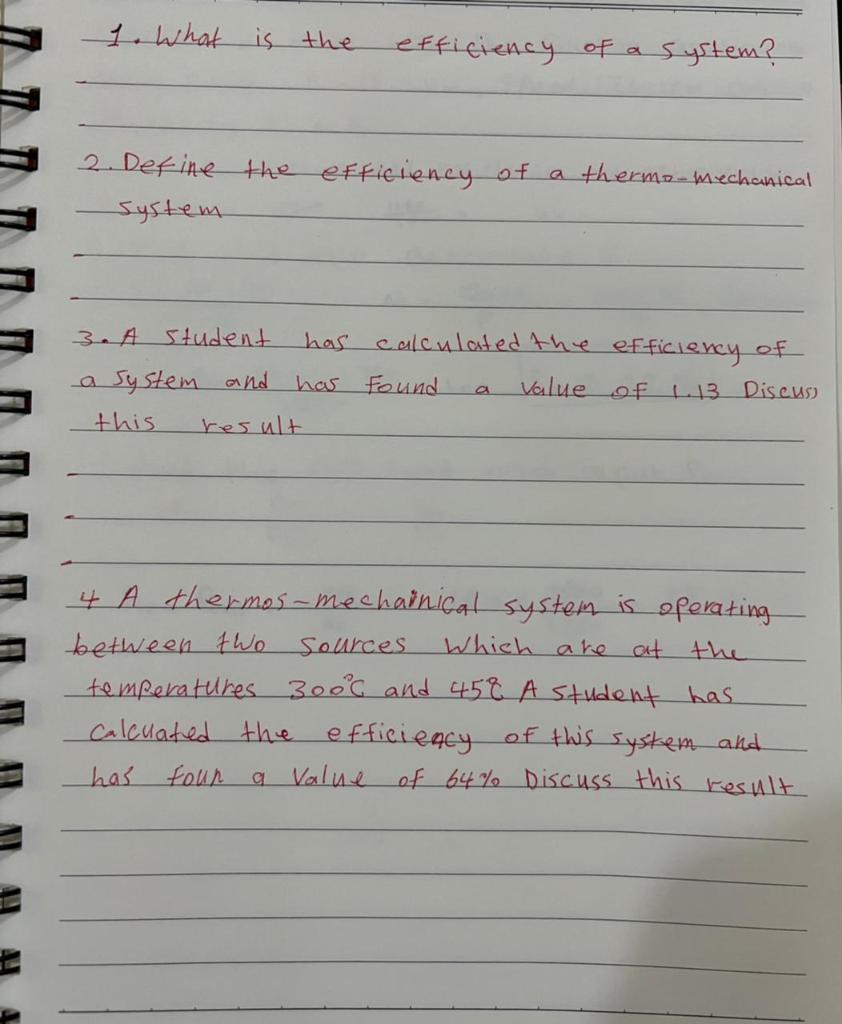 1. What is the efficiency of a system?
2. Define the efficiency of a thermo-mechanical
system
3. A student has calculated the efficiency of
a system and has found a value of 1.13 Discuss
this result
4 A thermos-mechainical system is operating
between two sources which are at the
temperatures 300°C and 45°C A student has
calcuated the efficiency of this system and
has foun a value of 64% Discuss this result